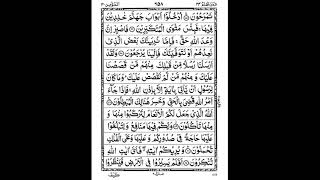 ۶۵۸
تَمْرَحُوْنَ ۝ اُدْخُلُوْۤا اَبْوَابَ جَهَنَّمَ خٰلِدِيْنَ
فِيْهَا ۚ فَبِئْسَ مَثْوَى الْمُتَكَبِّرِيْنَ ۝ فَاصْبِرْ اِنَّ
وَعْدَ اللّٰهِ حَقٌّ ۚ فَاِمَّا نُرِيَنَّكَ بَعْضَ الَّذِيْ
نَعِدُهُمْ اَوْ نَتَوَفَّيَنَّكَ فَاِلَيْنَا يُرْجَعُوْنَ ۝ وَلَقَدْ
اَرْسَلْنَا رُسُلًا مِّنْ قَبْلِكَ مِنْهُمْ مَّنْ قَصَصْنَا
عَلَيْكَ وَمِنْهُمْ مَّنْ لَّمْ نَقْصُصْ عَلَيْكَ ؕ وَمَا كَانَ
لِرَسُوْلٍ اَنْ يَّاْتِيَ بِاٰيَةٍ اِلَّا بِاِذْنِ اللّٰهِ ۚ فَاِذَا جَآءَ
اَمْرُ اللّٰهِ قُضِيَ بِالْحَقِّ وَخَسِرَ هُنَالِكَ الْمُبْطِلُوْنَ ۝
اَللّٰهُ الَّذِيْ جَعَلَ لَكُمُ الْاَنْعَامَ لِتَرْكَبُوْا مِنْهَا
وَمِنْهَا تَاْكُلُوْنَ ۝ وَلَكُمْ فِيْهَا مَنَافِعُ وَلِتَبْلُغُوْا
عَلَيْهَا حَاجَةً فِيْ صُدُوْرِكُمْ وَعَلَيْهَا وَعَلَى الْفُلْكِ
تُحْمَلُوْنَ ۝ وَيُرِيْكُمْ اٰيٰتِهٖ ۖ فَاَيَّ اٰيٰتِ اللّٰهِ
تُنْكِرُوْنَ ۝ اَفَلَمْ يَسِيْرُوْا فِي الْاَرْضِ فَيَنْظُرُوْا